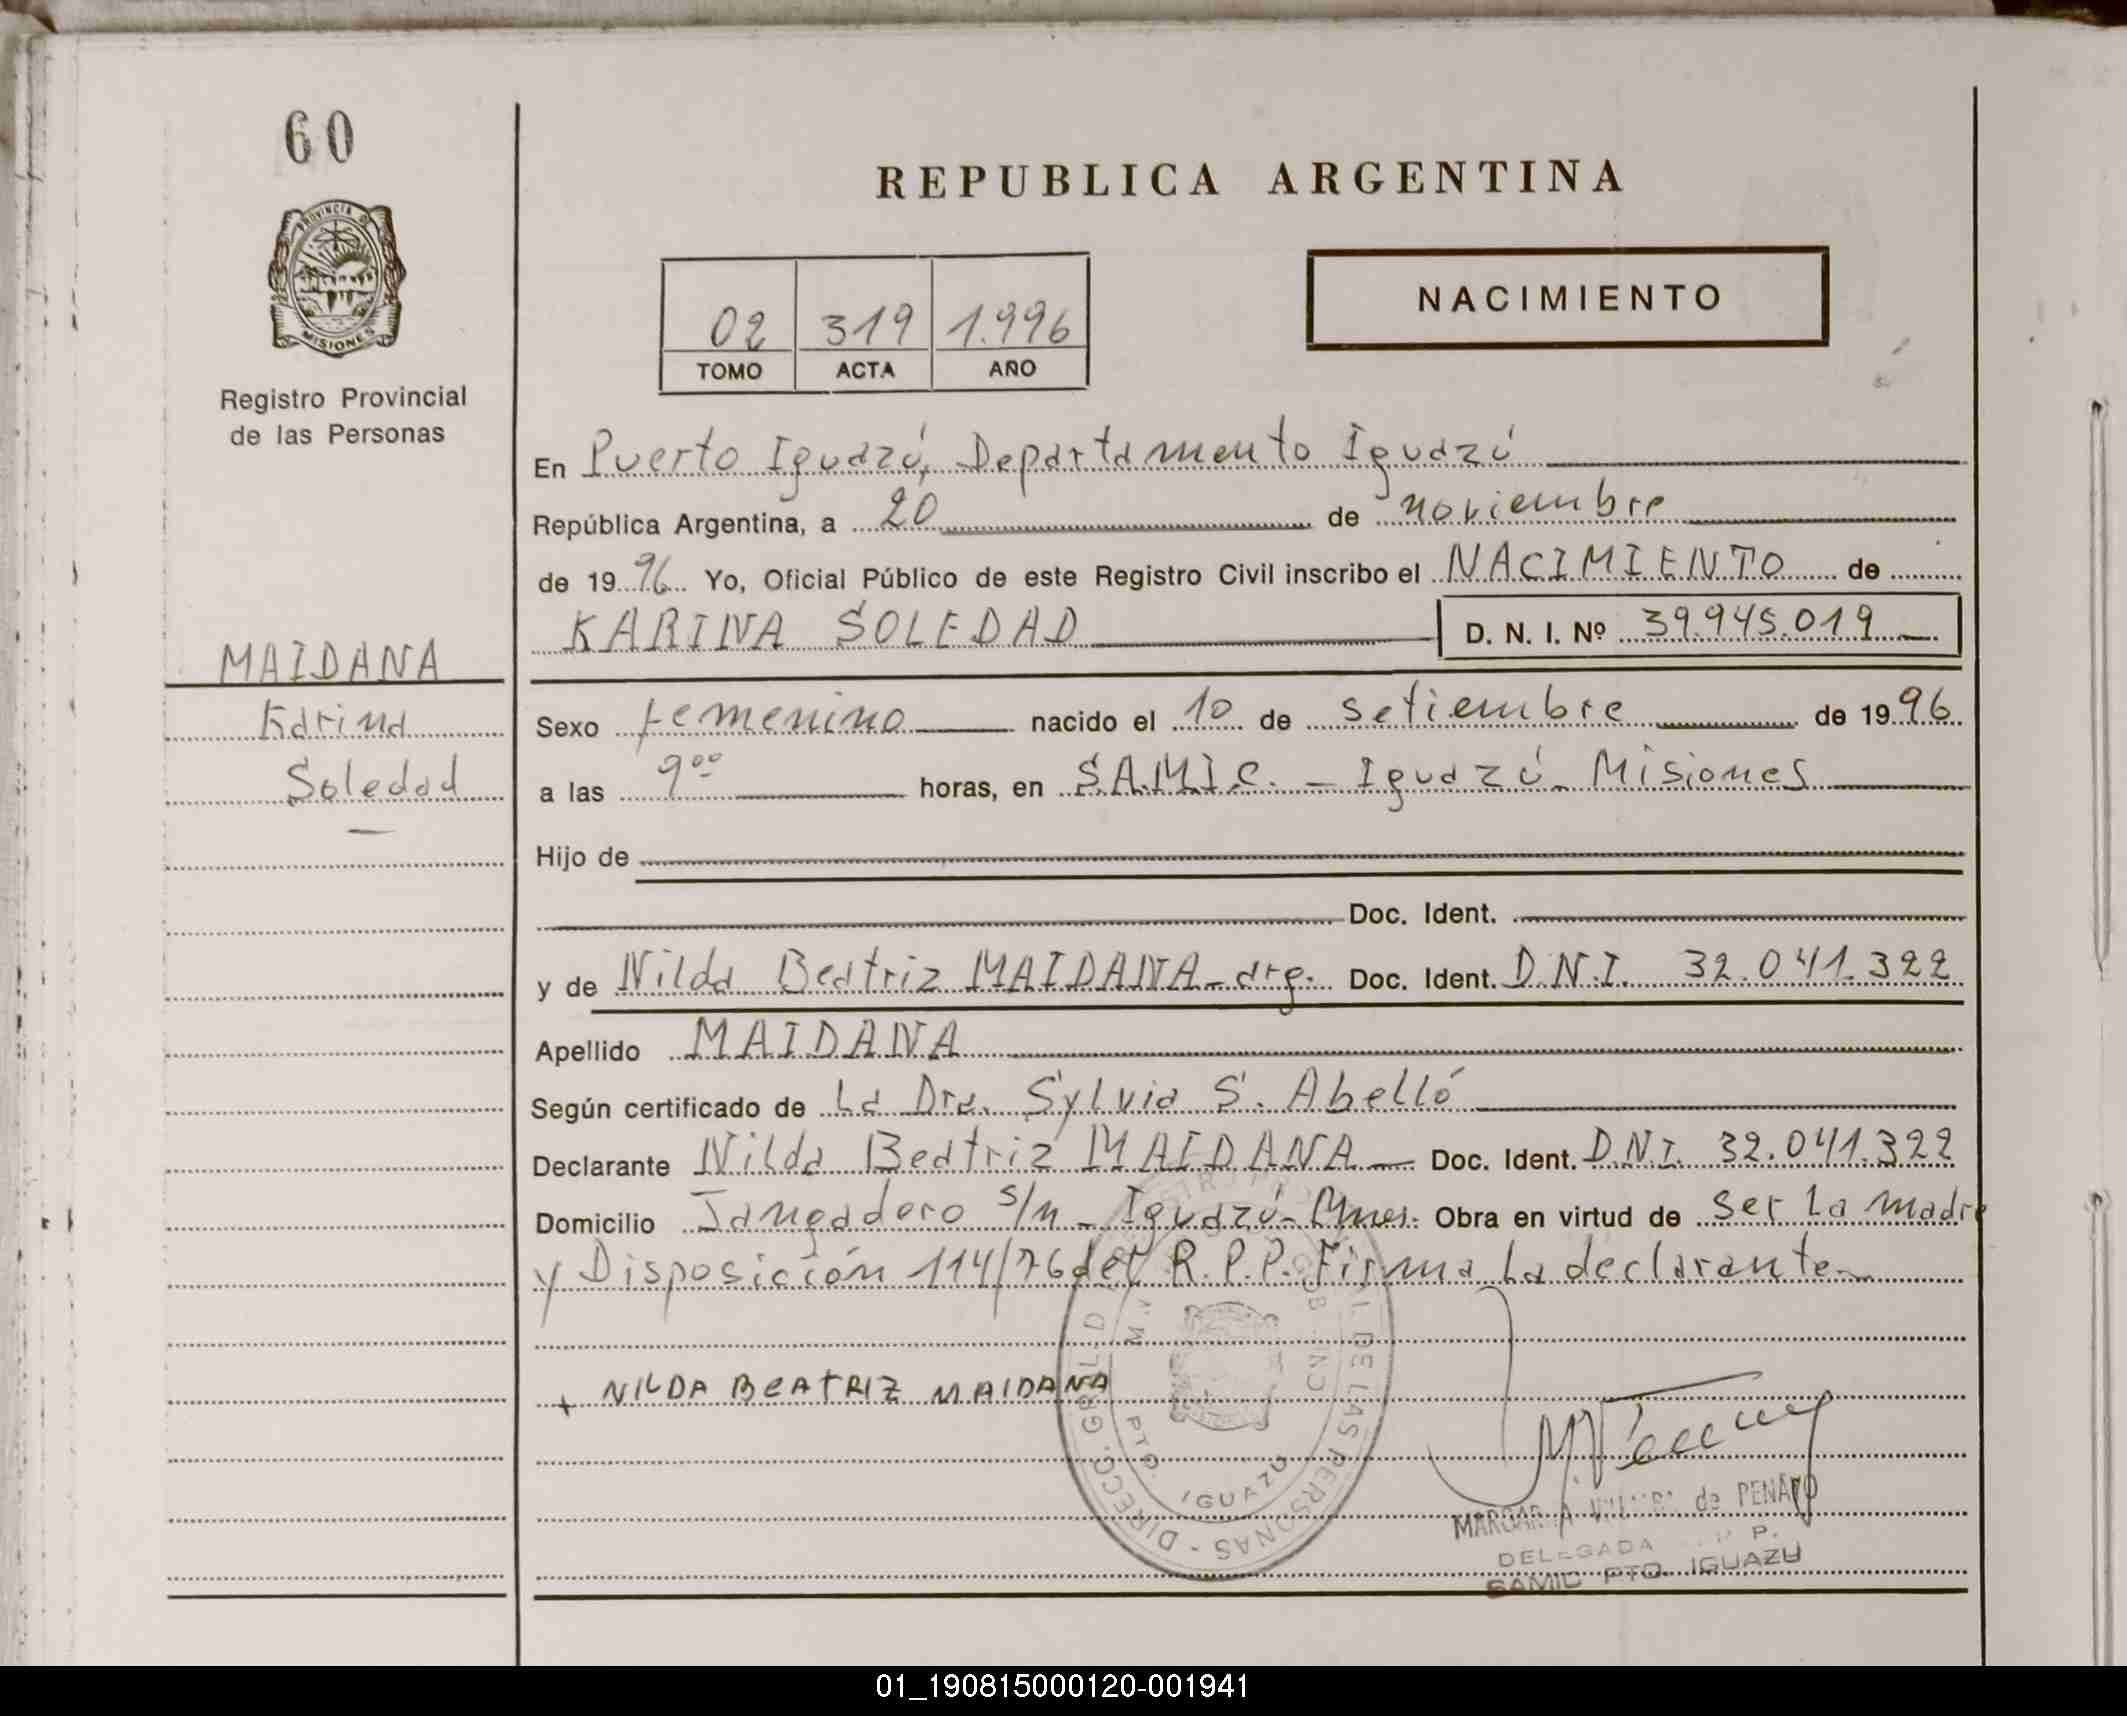 60
PROVINCIA D
MISIONES
Registro Provincial
de las Personas
MAIDANA
Karina
Soledad
REPUBLICA ARGENTINA
NACIMIENTO
02 319 1.996
TOMO ACTA AÑO
En Puerto Iguazú, Departamento Iguazú
República Argentina, a 20 de noviembre
de 1996 Yo, Oficial Público de este Registro Civil inscribo el NACIMIENTO de
KARINA SOLEDAD D. N. I. Nº 39.945.019
Sexo femenino nacido el 10 de setiembre de 1996
a las 9ºº horas, en S.A.M.I.C. - Iguazú - Misiones
Hijo de
Doc. Ident.
y de Nilda Beatriz MAIDANA - arg. Doc. Ident. D.N.I. 32.041.322
Apellido MAIDANA
Según certificado de La Dra. Sylvia S. Abelló
Declarante Nilda Beatriz MAIDANA - Doc. Ident. D.N.I. 32.041.322
Domicilio Jangadero s/n - Iguazú - Mnes. Obra en virtud de ser La madre
y Disposición 114/76 del R.P.P. Firma La declarante
+ NILDA BEATRIZ MAIDANA
DE LAS PERSONAS - DIRECC. GRAL. D
PTO. IGUAZU
de PENAYO
DELEGADA P.
SAMIC PTO. IGUAZU
01_190815000120-001941